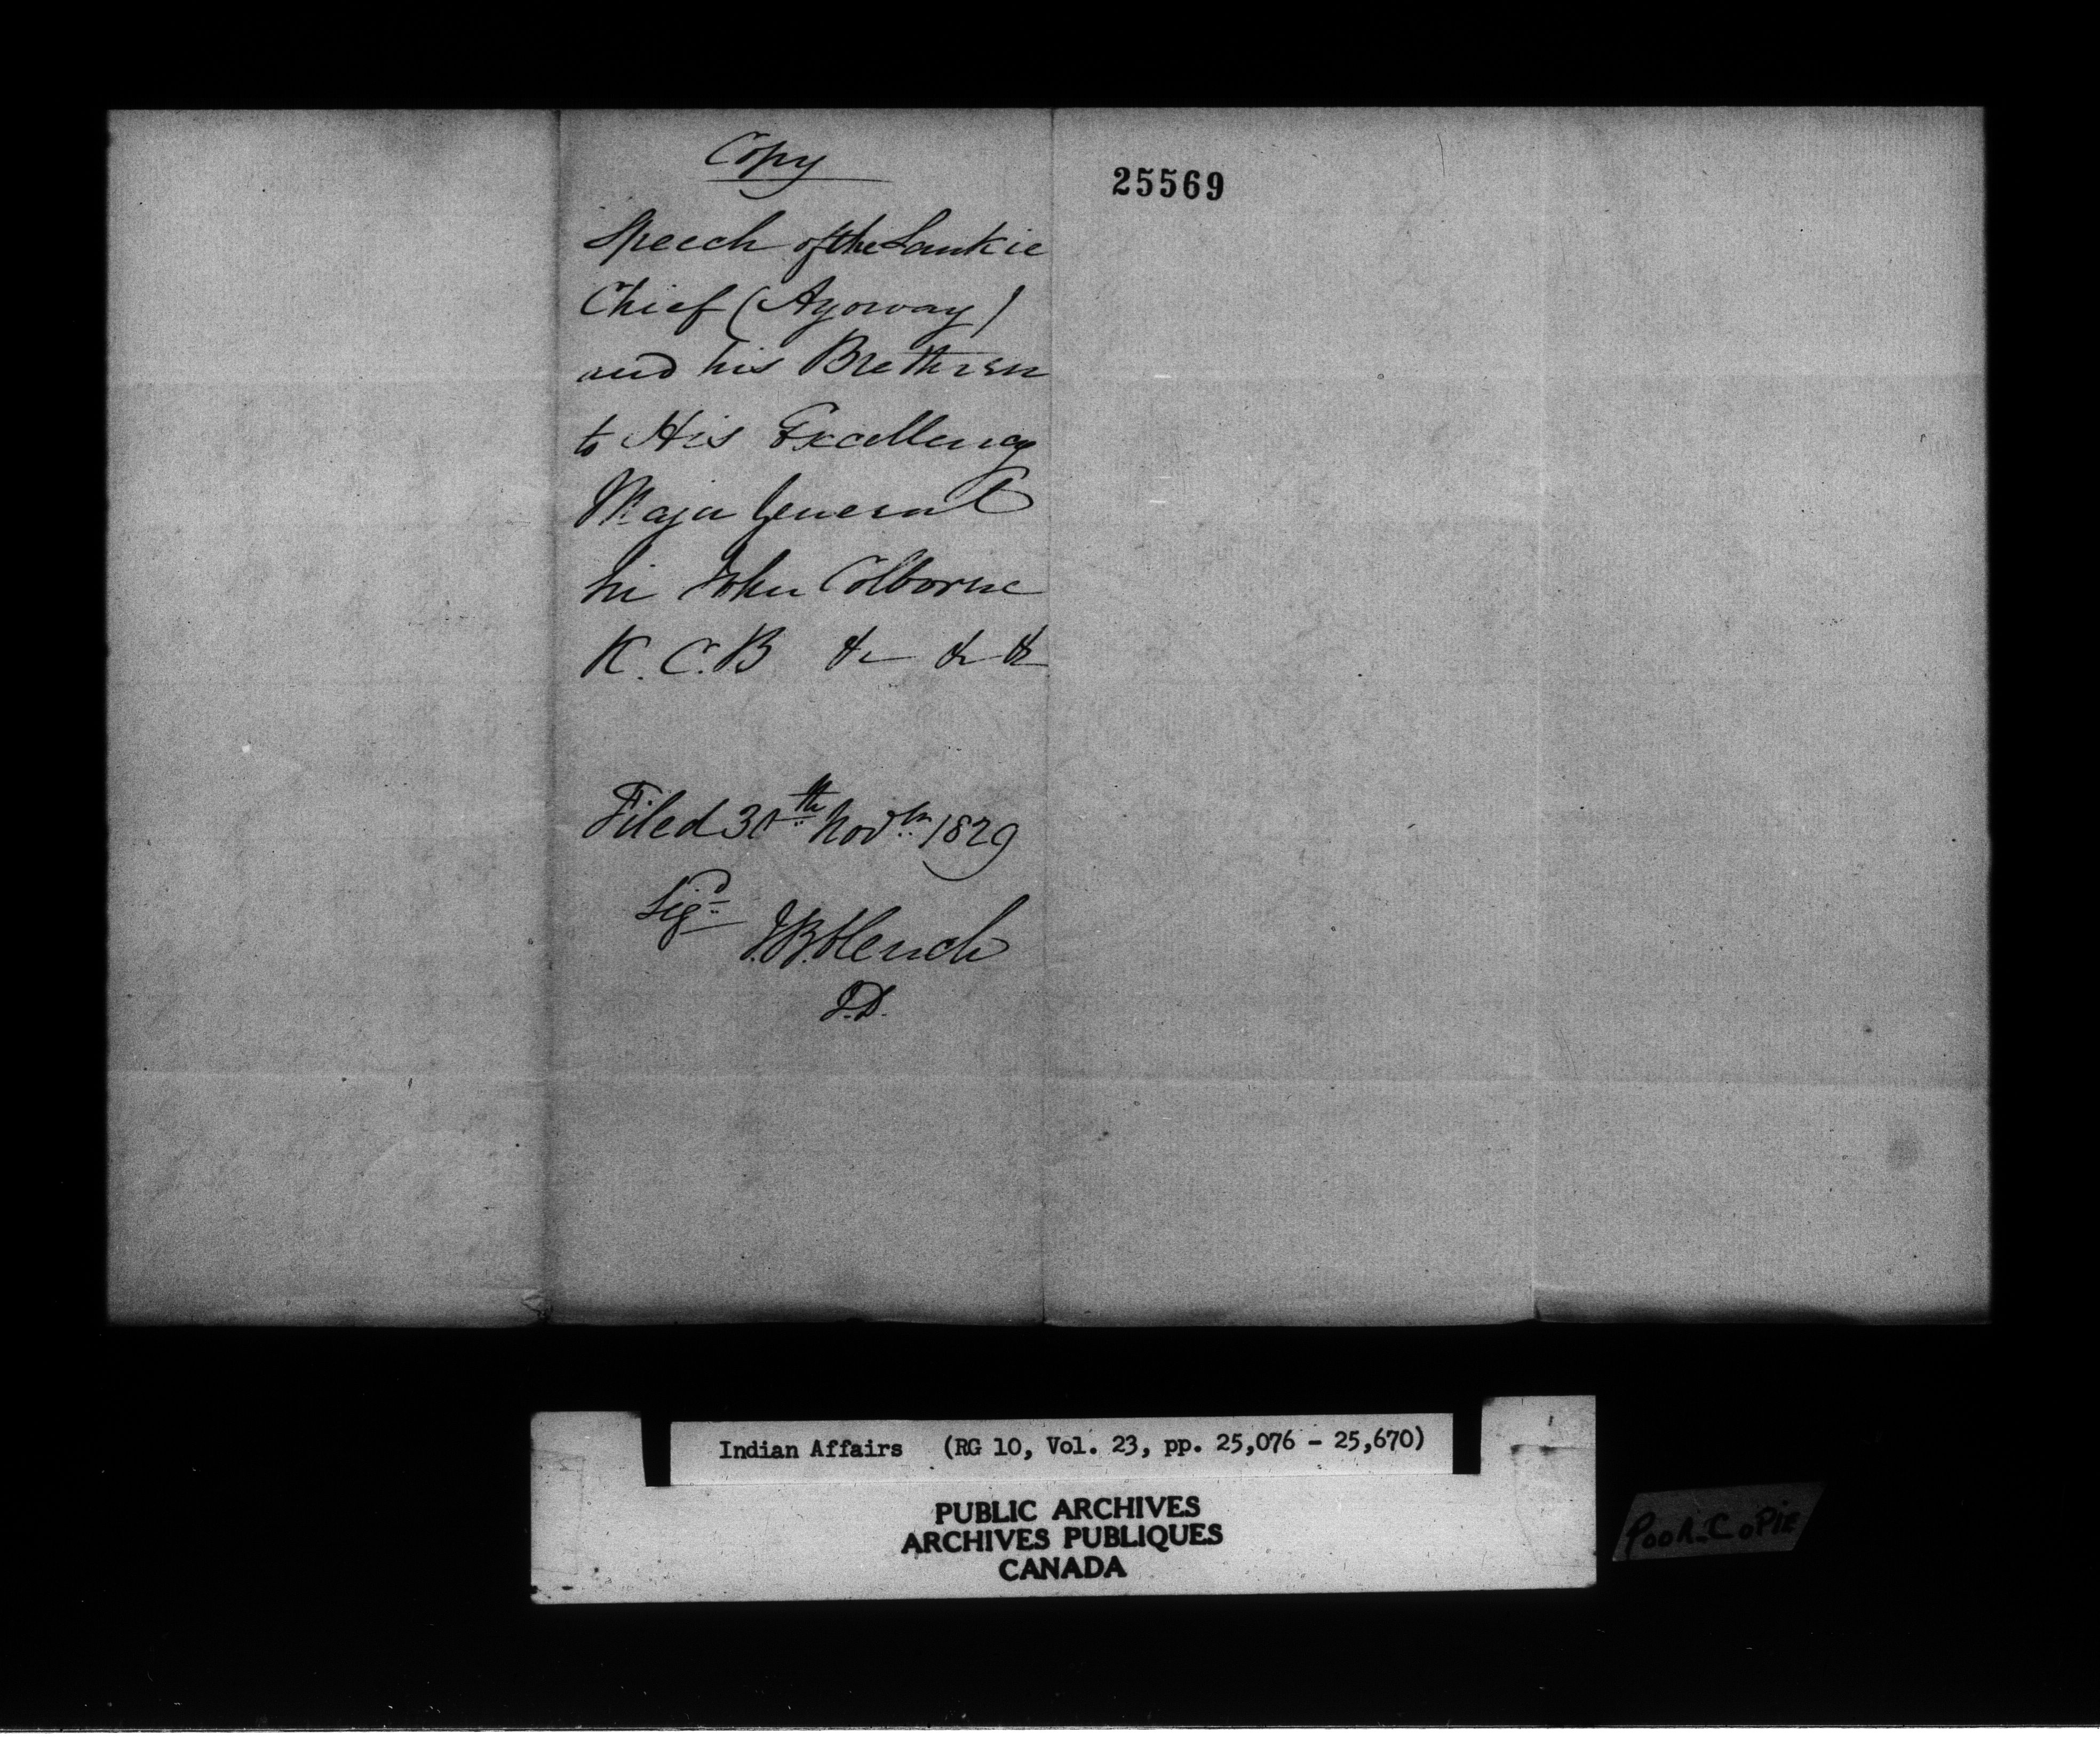 Copy
25569
Speech of the Saukie
Chief (Ayoway)
and his Brethren
to His Excellency
Major General
Sir John Colborne
K.C.B &c &c &c
Filed 30th Novbr 1829
Sigd
J.B. Clench
J.D.
Indian Affairs (RG 10, Vol. 23, pp. 25,076 - 25,670)
PUBLIC ARCHIVES
ARCHIVES PUBLIQUES
CANADA
POOR COPIE